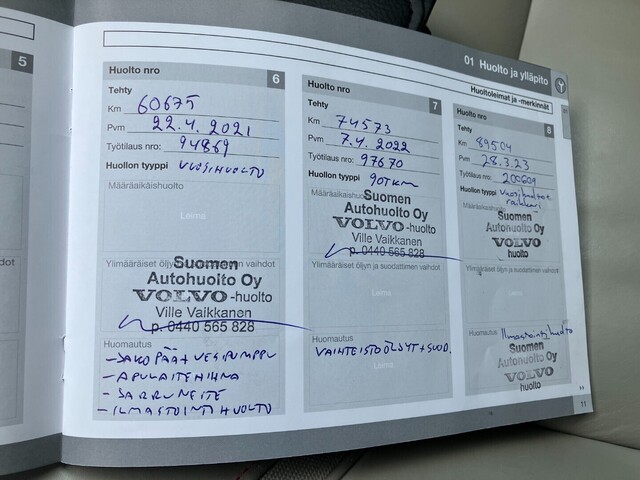 5
01 Huolto ja ylläpito
Huoltoleimat ja -merkinnät
Huolto nro 6
Tehty
Km 60675
Pvm 22.4.2021
Työtilaus nro: 94869
Huollon tyyppi VUOSIHUOLTO
Määräaikaishuolto
Leima
Ylimääräiset öljyn ja suodattimen vaihdot
Suomen
Autohuolto Oy
VOLVO-huolto
Ville Vaikkanen
p. 0440 565 828
Huomautus
- JAKOPÄÄ + VESIPUMPPU
- APULAITEHIHNA
- JARRUNESTE
- ILMASTOINTIHUOLTO
Huolto nro 7
Tehty
Km 74573
Pvm 7.4.2022
Työtilaus nro: 97670
Huollon tyyppi 90TKM
Määräaikaishuolto
Suomen
Autohuolto Oy
VOLVO-huolto
Ville Vaikkanen
p. 0440 565 828
Ylimääräiset öljyn ja suodattimen vaihdot
Leima
Huomautus
VAIHTEISTOÖLJYT + SUOD.
Leima
Huolto nro 8
Tehty
Km 89504
Pvm 28.3.23
Työtilaus nro: 200609
Huollon tyyppi
Suomen
Autohuolto Oy
VOLVO
huolto
Ylimääräiset öljyn ja suodattimen vaihdot
Leima
Huomautus Ilmastointihuolto
Suomen
Autohuolto Oy
VOLVO
huolto
11